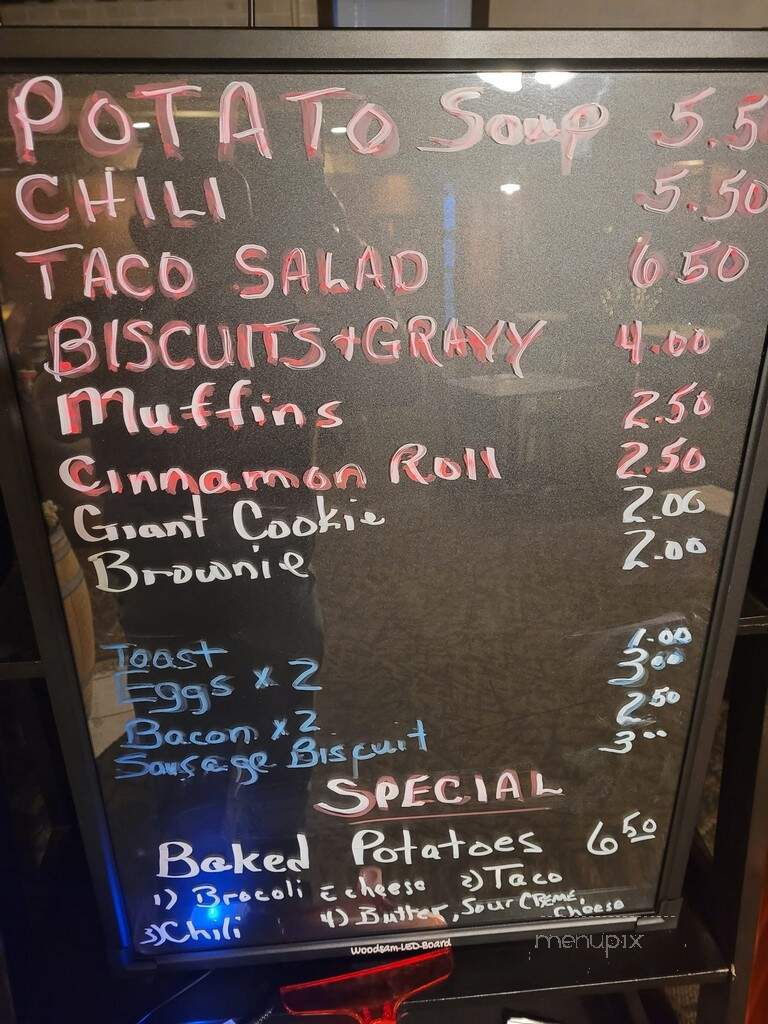 POTATO Soup 5.5
CHILI 5.50
TACO SALAD 6 50
BISCUITS + GRAVY 4.00
Muffins 2.50
Cinnamon Roll 2.50
Giant Cookie 2.00
Brownie 2.00
Toast 1.00
Eggs x 2 3 00
Bacon x 2 2 50
Sausage Biscuit 3 00
SPECIAL
Baked Potatoes 6 50
1) Brocoli c̄ cheese 2) Taco
3) Chili 4) Butter, Sour CREME, Cheese
Woodsam-LED-Board
menupix